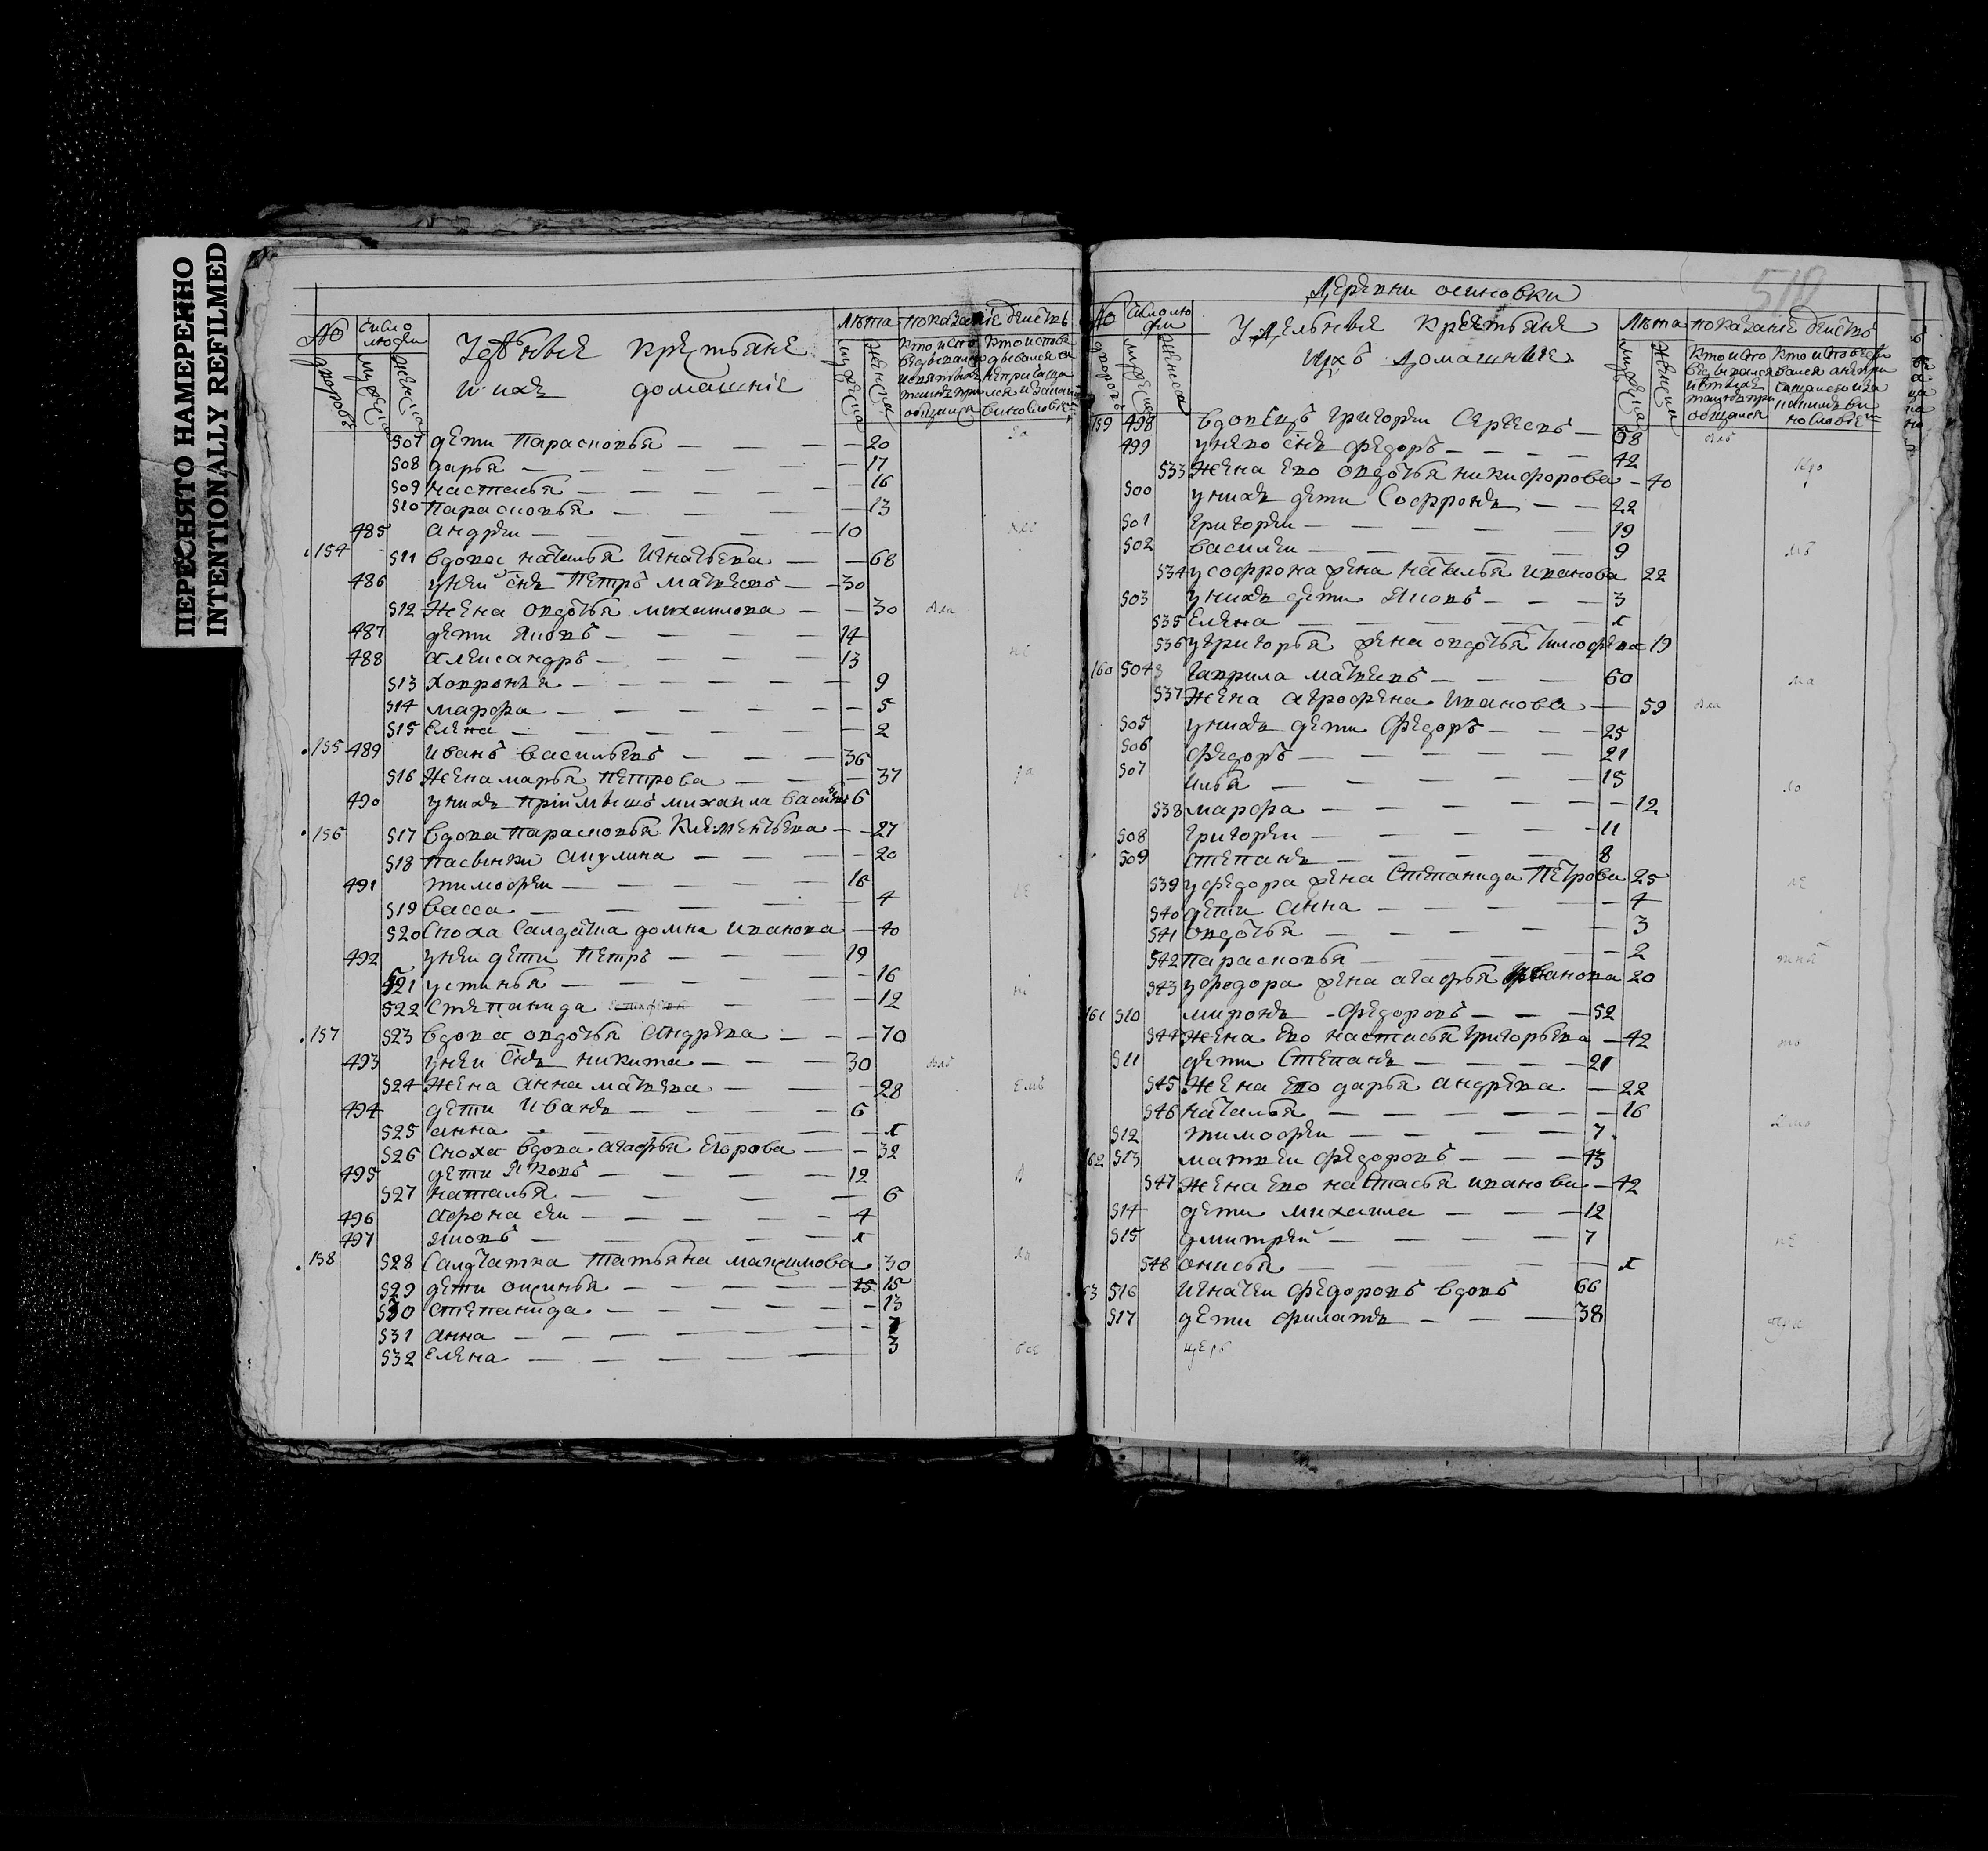 ПЕРЕСНЯТО НАМЕРЕННО
INTENTIONALLY REFILMED
№ число людеи
дворовъ мужеска женска
Удѣльныя крестьяне
и ихъ домашніе
Лѣта показаніе
мужеска женска
507 дети Парасковья 20
508 дарья 17
509 настасья 16
510 Парасковья 13
485 андреи 10
154 511 вдова наталья Игнатьева 68
486 у неи снъ Петръ матвеевъ 30
512 Жена овдотья михаилова 30
487 дети яковъ 14
488 александръ 13
513 ховронья 9
514 марфа 5
515 елена 2
155 489 иванъ васильевъ 36
516 Жена марья петрова 37
490 у нихъ пріимышъ михаила 6
156 517 вдова парасковья Клементьева 27
518 пасынки акулина 20
491 тимофеи 16
519 васса 4
520 сноха салдатка домна иванова 40
492 у неи дети Петръ 19
521 устинья 16
522 степанида 12
157 523 вдова овдотья андреева 70
493 у неи снъ никита 30
524 Жена анна матвеева 28
494 дети иванъ 6
525 анна
526 сноха вдова агафья егорова 32
495 дети яковъ 12
527 наталья 6
496 афонасеи 4
497 яковъ
158 528 салдатка татьяна максимова 30
529 дети оксинья 15 15
530 степанида 13
531 анна
532 елена 3
Деревни осиновки
518
№ число людеи
дворовъ мужеска женска
Удельныя крестьяне
ихъ домашние
Лѣта показаніе
мужеска женска
159 498 вдовецъ григореи сергеевъ 68
499 у него снъ федоръ 42
533 Жена его овдотья никифорова 40
500 у нихъ дети Софронъ 22
501 григореи 19
502 василеи 9
534 у софрона жена наталья иванова 22
503 у нихъ дети яковъ 3
535 елена
536 у григорья жена овдотья тимофеева 19
160 504 гаврила матвеевъ 60
537 Жена аграфена иванова 59
505 у нихъ дети федоръ 25
506 федоръ 21
507 илья 15
538 марфа 12
508 григореи 11
509 степанъ 8
539 у федора жена степанида петрова 25
540 дети анна 4
541 овдотья 3
542 парасковья 2
543 у федора жена агафья иванова 20
161 510 миронъ федоровъ 52
544 Жена его настасья григорьева 42
511 дети степанъ 21
545 Жена его дарья андреева 22
546 наталья 16
512 тимофеи 7
162 513 матвеи федоровъ 43
547 Жена его настасья иванова 42
514 дети михаила 12
515 дмитреи 7
548 онисья
63 516 игнатеи федоровъ вдовъ 66
517 дети филатъ 38